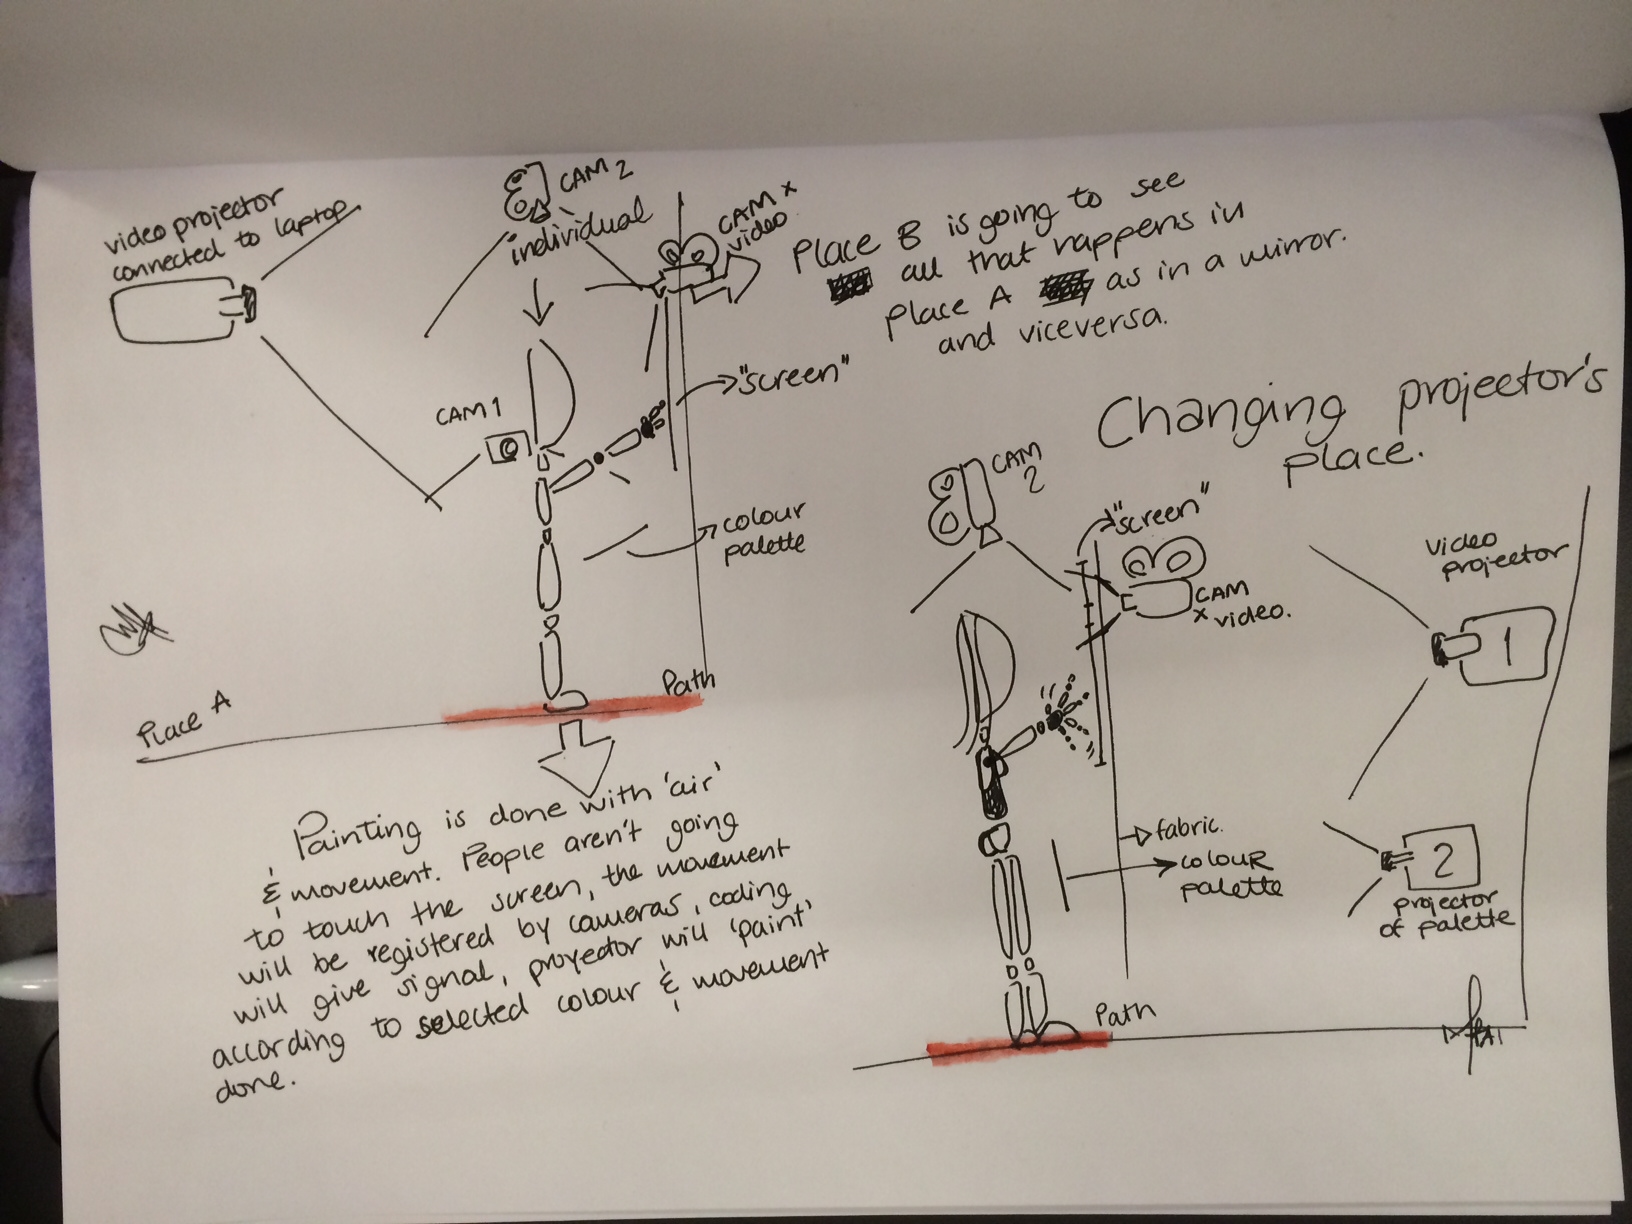 video projector
connected to laptop
CAM 2
individual
CAM x
video
Place B is going to see
all that happens in
place A as in a mirror.
and viceversa.
CAM 1
"screen"
colour
palette
Path
Place A
Painting is done with 'air'
& movement. People aren't going
to touch the screen, the movement
will be registered by cameras, coding
will give signal, proyector will 'paint'
according to selected colour & movement
done.
Changing projector's
place.
CAM
2
"screen"
CAM
x video.
video
projector
1
fabric.
colour
palette
2
projector
of palette
Path